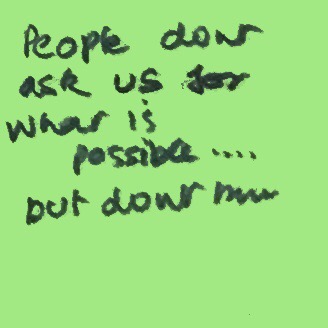 People dont
ask us for
what is
possible ....
but dont